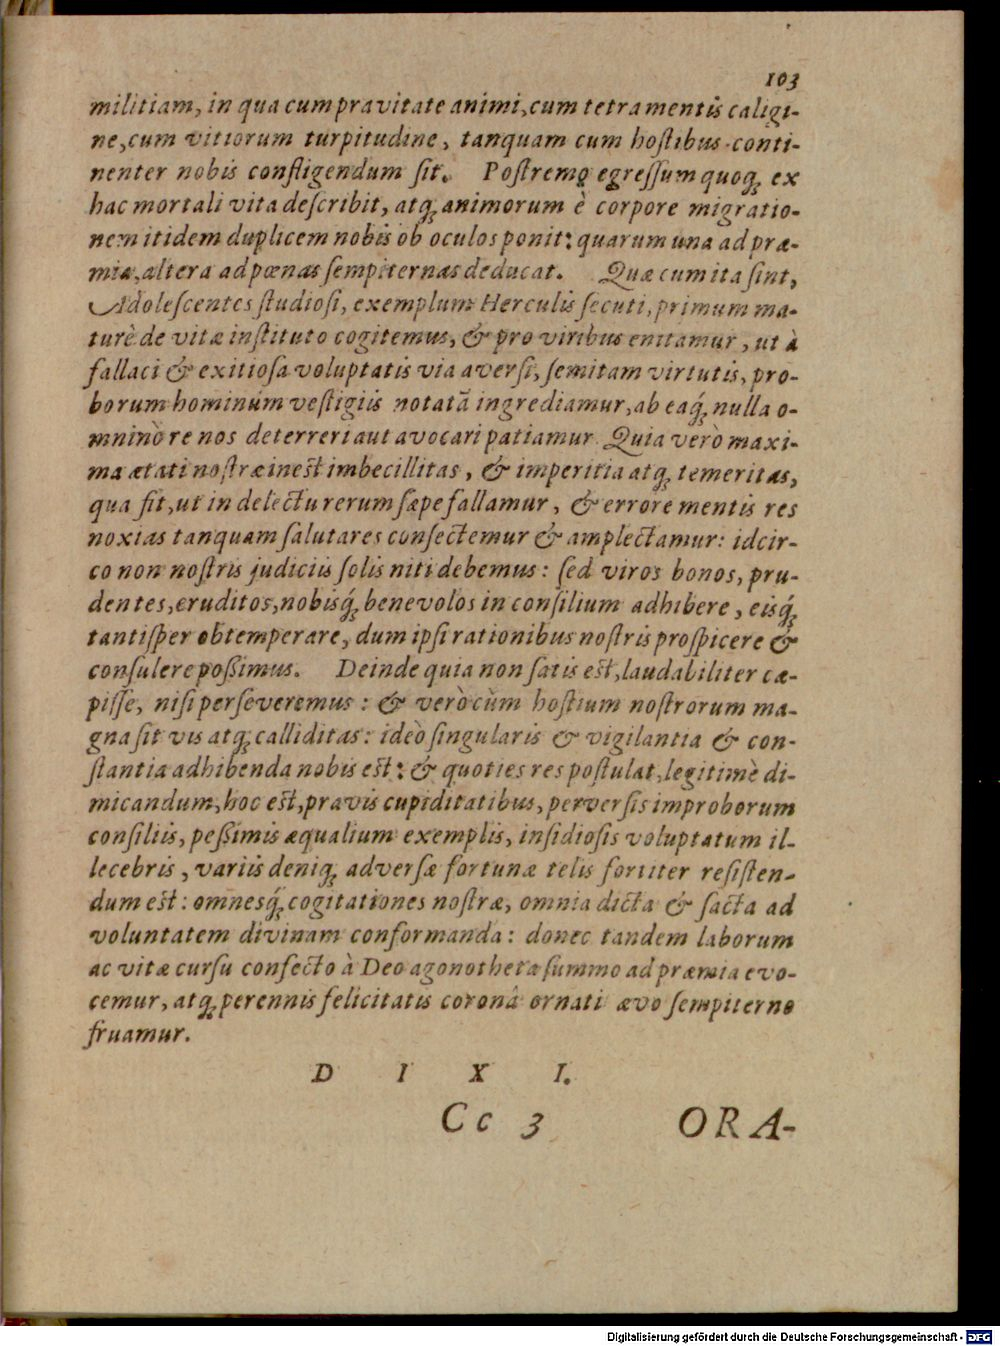 103
militiam, in qua cum pravitate animi, cum tetra mentis caligi-
ne, cum vitiorum turpitudine, tanquam cum hoſtibus conti-
nenter nobis confligendum ſit. Poſtremo egreſſum quoq́; ex
hac mortali vita deſcribit, atq́; animorum è corpore migratio-
nem itidem duplicem nobis ob oculos ponit: quarum una ad præ-
mia, altera ad pœnas ſempiternas deducat. Quæ cum ita ſint,
Adoleſcentes ſtudioſi, exemplum Herculis ſecuti, primum ma-
turè de vitæ inſtituto cogitemus, & pro viribus enitamur, ut à
fallaci & exitioſa voluptatis via averſi, ſemitam virtutis, pro-
borum hominum veſtigiis notatã ingrediamur, ab eaq́; nulla o-
mninò re nos deterreri aut avocari patiamur. Quia verò maxi-
ma ætati noſtræ ineſt imbecillitas, & imperitia atq́; temeritas,
qua fit, ut in delectu rerum ſæpe fallamur, & errore mentis res
noxias tanquam ſalutares conſectemur & amplectamur: idcir-
co non noſtris judiciis ſolis niti debemus: ſed viros bonos, pru-
dentes, eruditos, nobisq́; benevolos in conſilium adhibere, eisq́;
tantiſper obtemperare, dum ipſi rationibus noſtris proſpicere &
conſulere poßimus. Deinde quia non ſatis eſt, laudabiliter cæ-
piſſe, niſi perſeveremus: & verò cùm hoſtium noſtrorum ma-
gna ſit vis atq́; calliditas: ideò ſingularis & vigilantia & con-
ſtantia adhibenda nobis eſt: & quoties res poſtulat, legitimè di-
micandum, hoc eſt, pravis cupiditatibus, perverſis improborum
conſiliis, peßimis æqualium exemplis, inſidioſis voluptatum il-
lecebris, variis deniq́; adverſæ fortunæ telis fortiter reſiſten-
dum eſt: omnesq́; cogitationes noſtræ, omnia dicta & facta ad
voluntatem divinam conformanda: donec tandem laborum
ac vitæ curſu confecto à Deo agonotheta ſummo ad præmia evo-
cemur, atq́; perennis felicitatis coronâ ornati ævo ſempiterno
fruamur.
D I X I.
Cc 3 ORA-
Digitalisierung gefördert durch die Deutsche Forschungsgemeinschaft - DFG